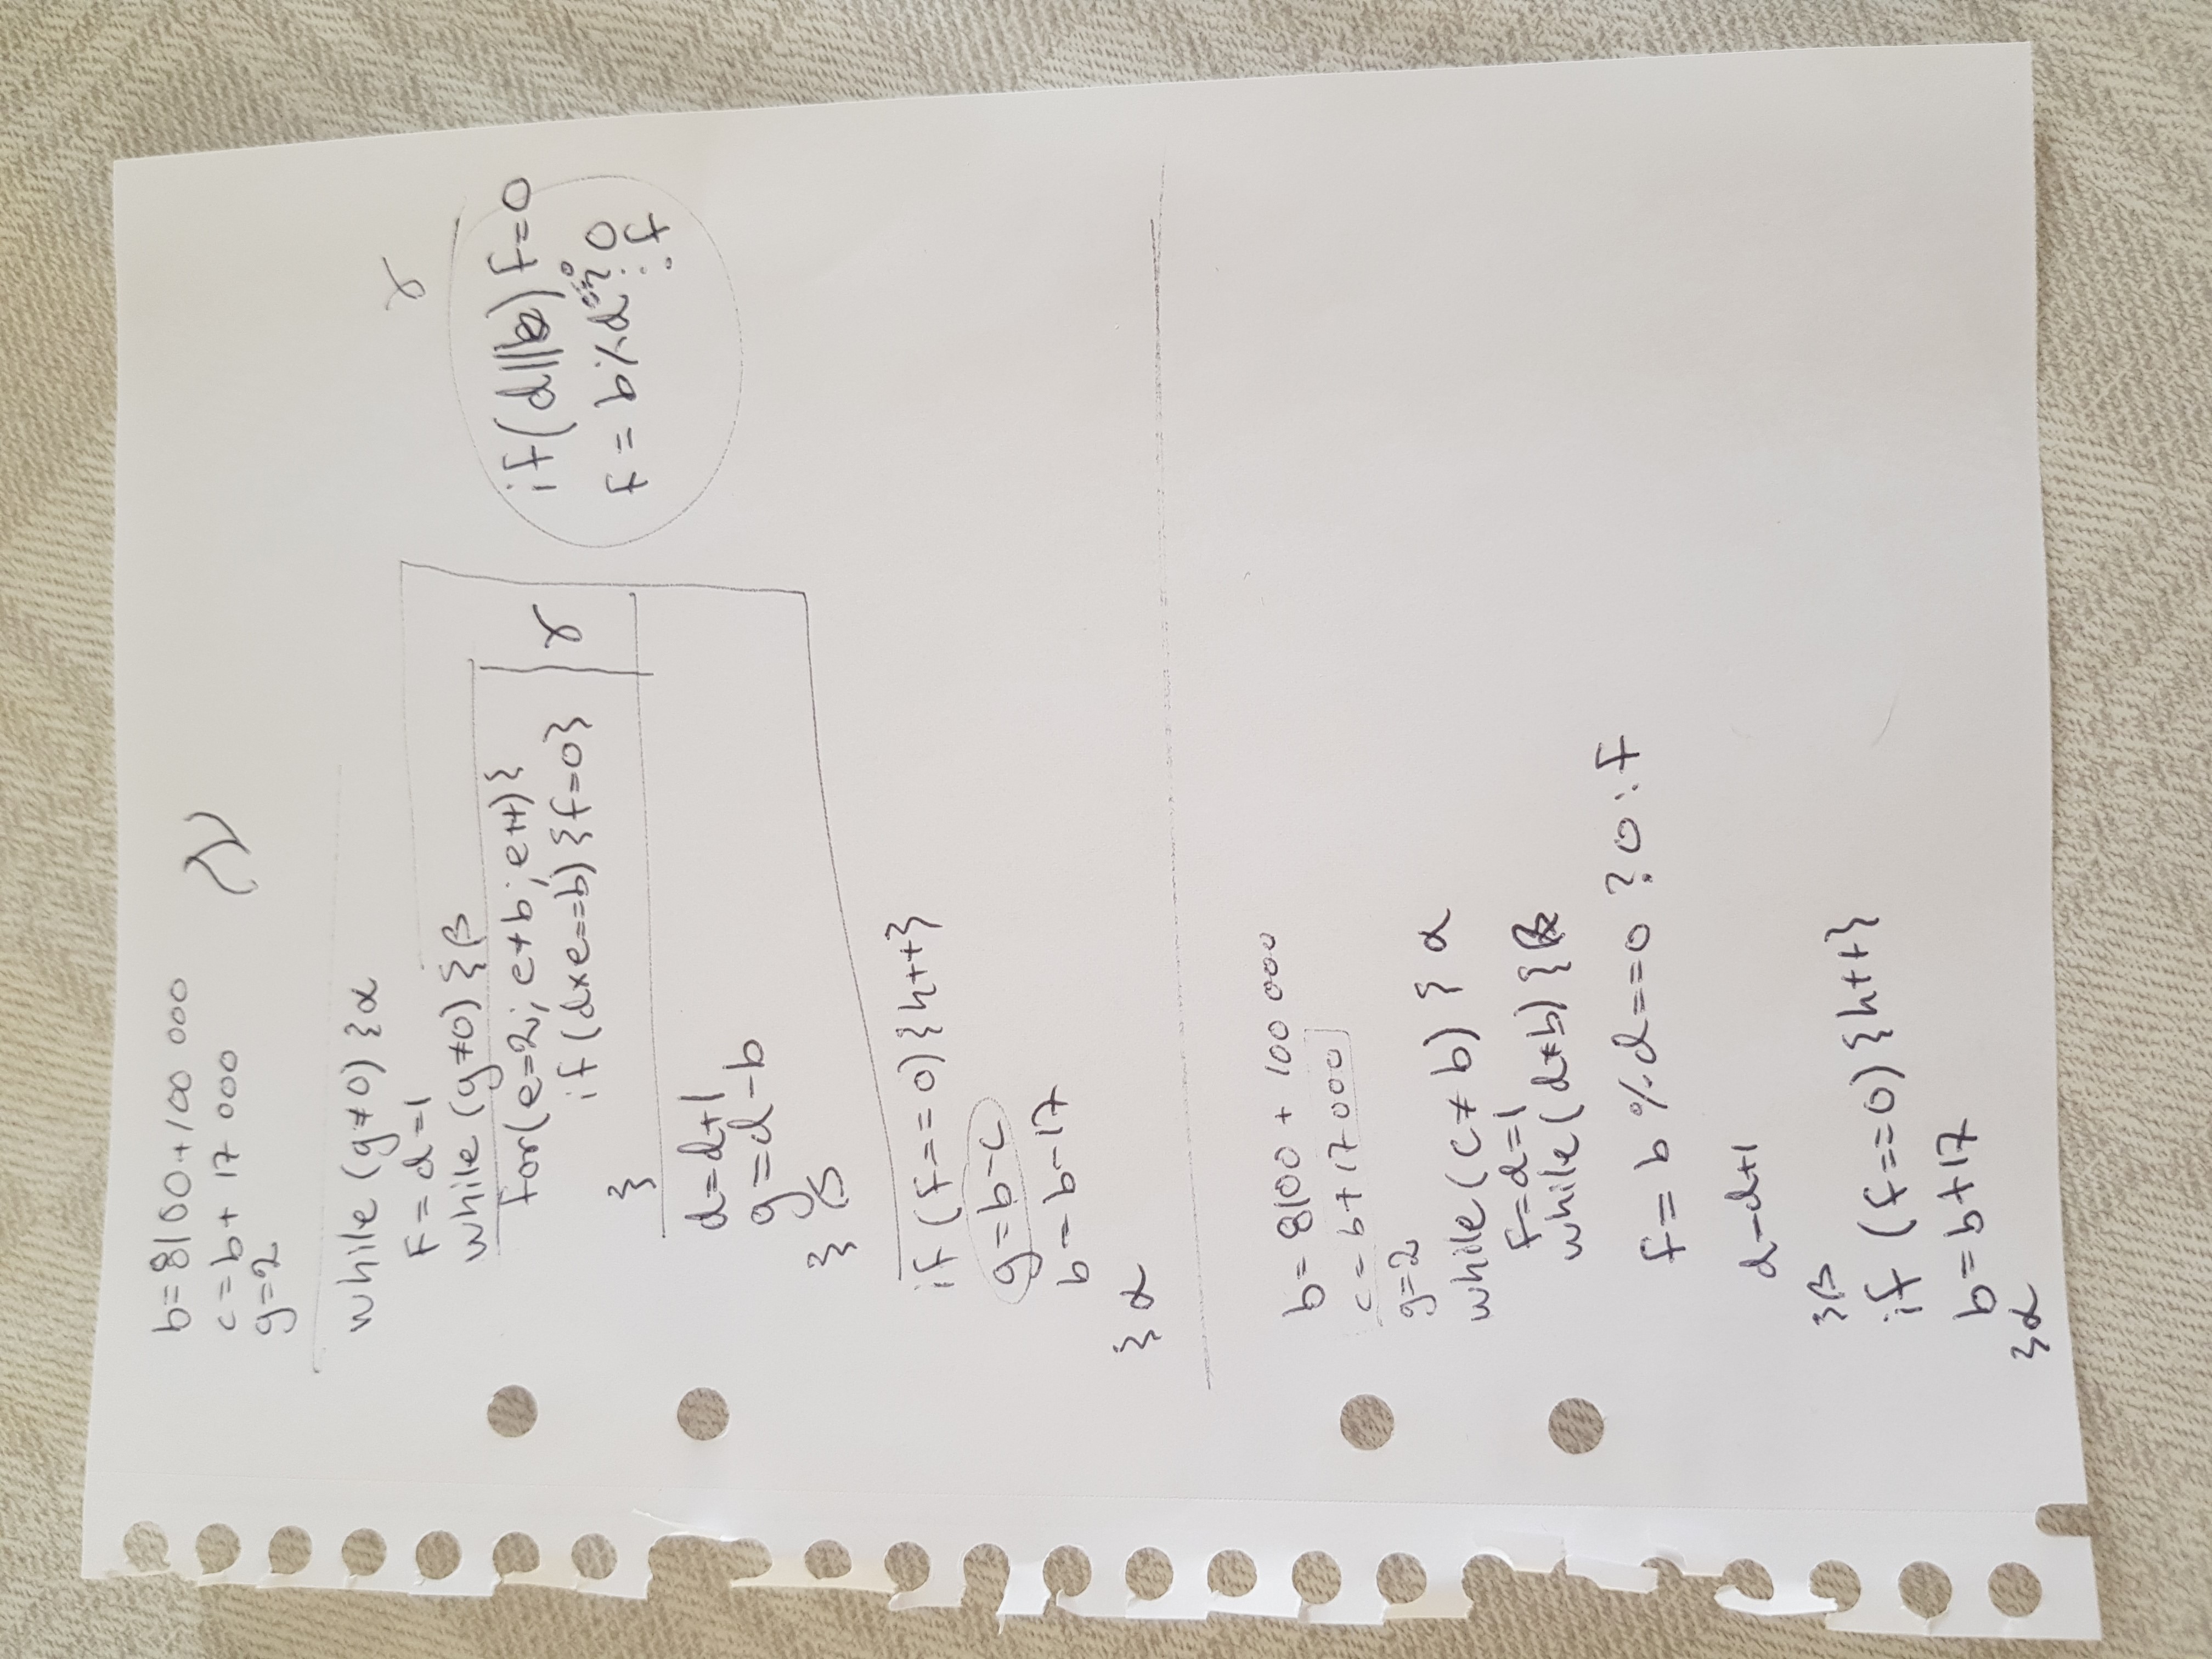 b=8100+100 000
c=b+ 17 000
g=2
while (g≠0) {α
F=d=1
while (g≠0) {β
for(e=2; e≠b; e++){
if(d×e==b) {f=0}
}
γ
d=d+1
g=d-b
} β
if (f==0){h++}
g=b-c
b=b-17
} α
γ
if(d||b) F=0
F = b%d==0? 0
: f
b= 8100 + 100 000
c=b+17 000
g=2
while(c≠b) { α
F=d=1
while(d≠b) {β
f= b %d==0 ? 0 : F
d=d+1
}β
if (f==0) {h++}
b=b+17
}α